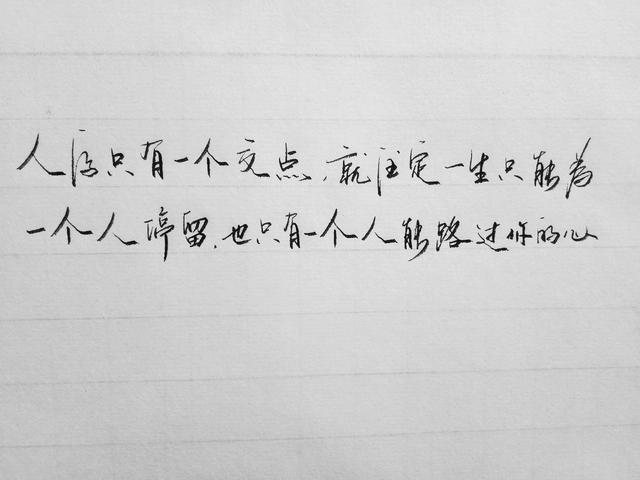 人海只有一个交点,就注定一生只能為
一个人停留,也只有一个人能路过你的心